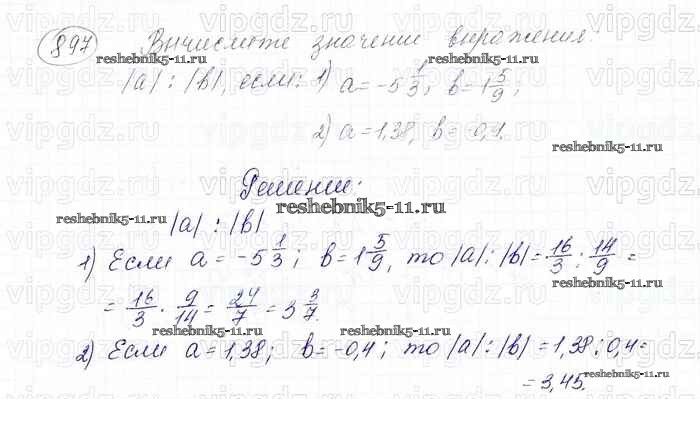 897 Вычислите значение выражения
|a| : |b|, если: 1) a = -5 1/3; b = 1 5/9;
2) a = 1,38, b = -0,4.
Решение:
|a| : |b|
1) Если a = -5 1/3; b = 1 5/9, то |a| : |b| = 16/3 : 14/9 =
= 16/3 · 9/14 = 24/7 = 3 3/7.
2) Если a = 1,38; b = -0,4; то |a| : |b| = 1,38 : 0,4 =
= 3,45.
vipgdz.com
reshebnik5-11.ru